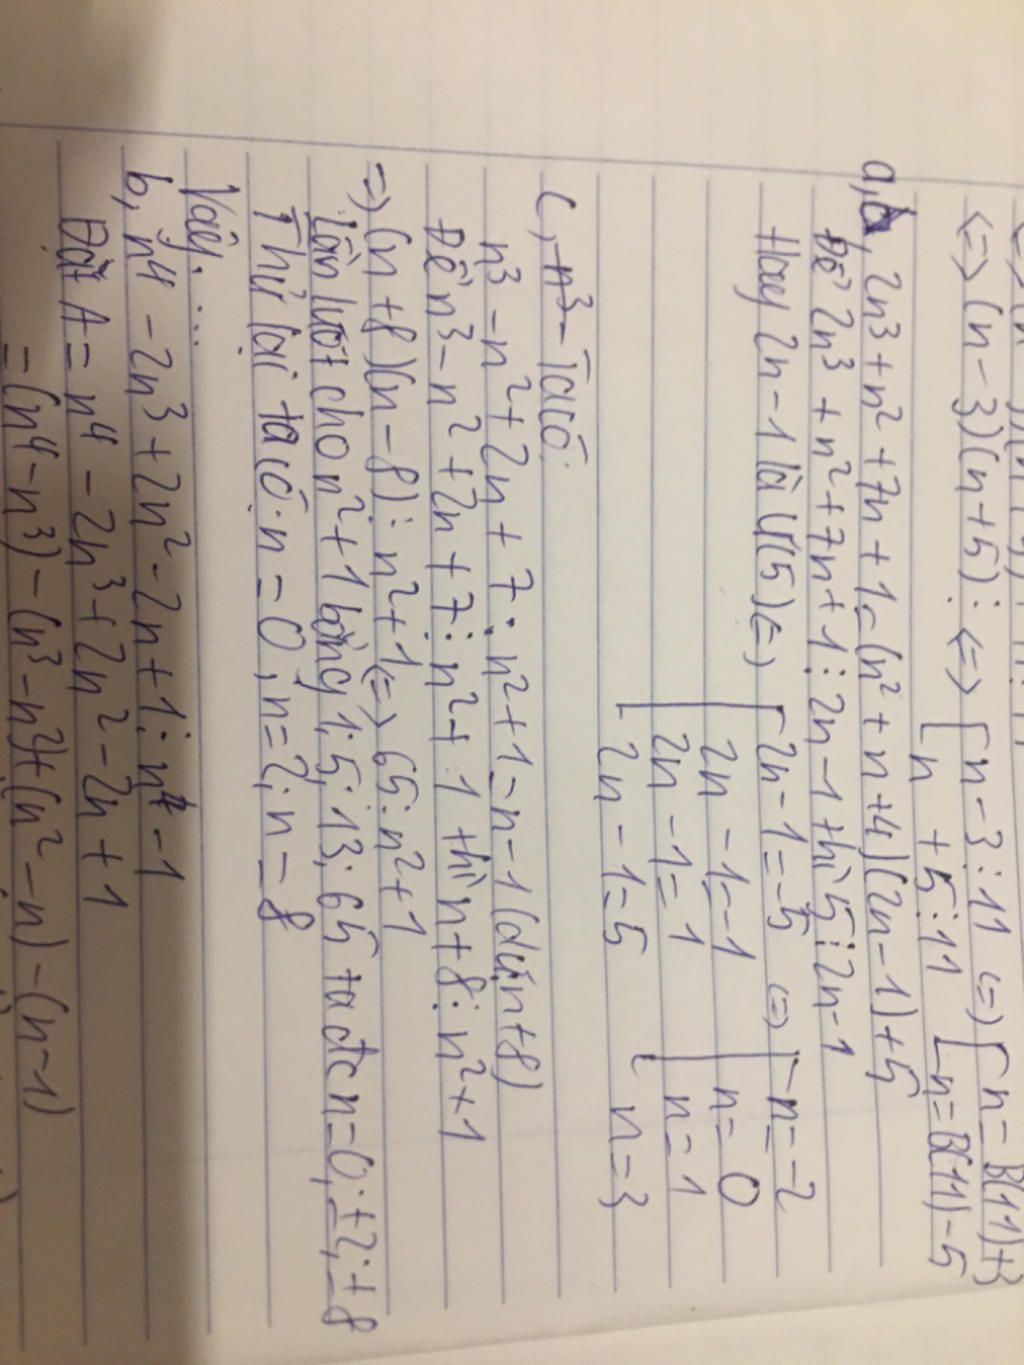 <=> (n-3)(n+5) ⋮ <=> [ n-3 ⋮ 11 <=> [ n = B(11)+3
n +5 ⋮ 11 n = B(11)-5
a, 2n³ + n² + 7n + 1 = (n² + n + 4)(2n-1) + 5
Để 2n³ + n² + 7n + 1 ⋮ 2n-1 thì 5 ⋮ 2n-1
Hay 2n-1 là Ư(5) <=> [ 2n-1 = -5 <=> [ n = -2
2n-1 = -1 n = 0
2n-1 = 1 n = 1
2n-1 = 5 n = 3
c, n³ - Ta có:
n³ - n² + 2n + 7 : n² + 1 = n-1 (dư n+8)
Để n³ - n² + 2n + 7 ⋮ n² + 1 thì n+8 ⋮ n² + 1
=> (n+8)(n-8) ⋮ n² + 1 <=> 65 ⋮ n² + 1
Lần lượt cho n² + 1 bằng 1; 5; 13; 65 ta đc n = 0; ±2; ±8
Thử lại ta có: n = 0, n = 2; n = -8
Vậy. ...
b, n⁴ - 2n³ + 2n² - 2n + 1 ⋮ n⁴ - 1
Đặt A = n⁴ - 2n³ + 2n² - 2n + 1
= (n⁴ - n³) - (n³ - n²) + (n² - n) - (n-1)